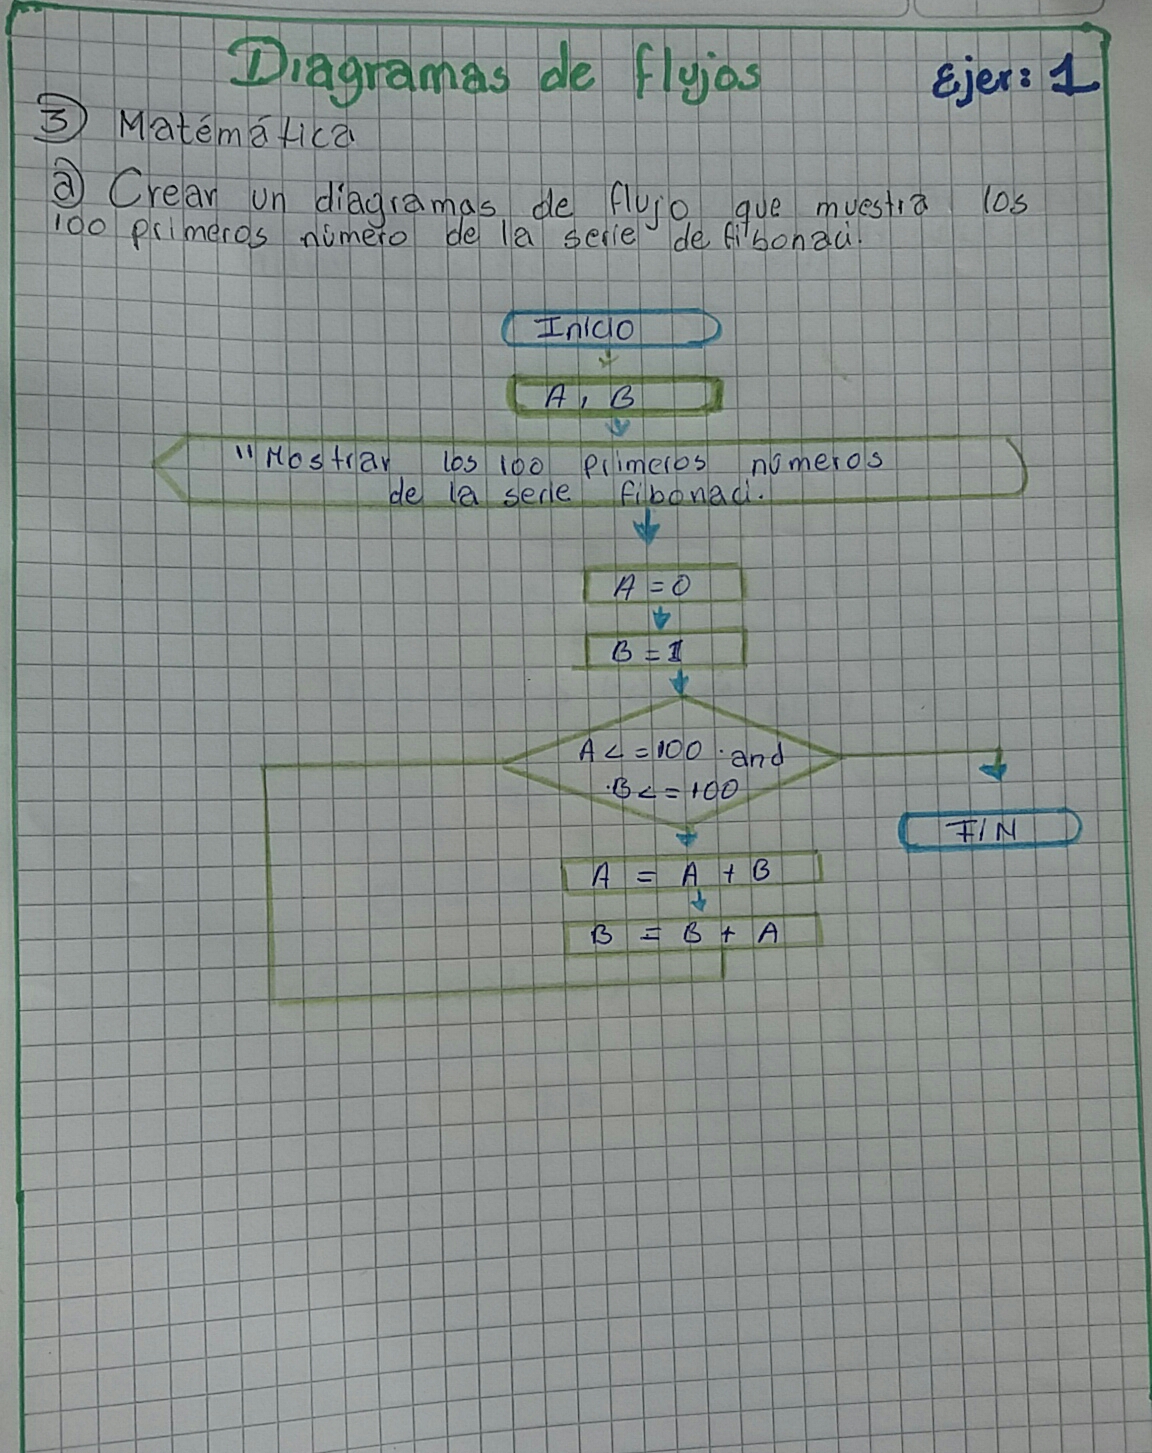 Diagramas de flujos
Ejer: 1
③ Matémática
ⓐ Crear un diagramas de flujo que muestra los
100 primeros número de la serie de fibonaci.
Inicio
A, B
"Mostrar los 100 primeros números
de la serie fibonaci.
A = 0
B = 1
A <= 100 and
B <= 100
FIN
A = A + B
B = B + A